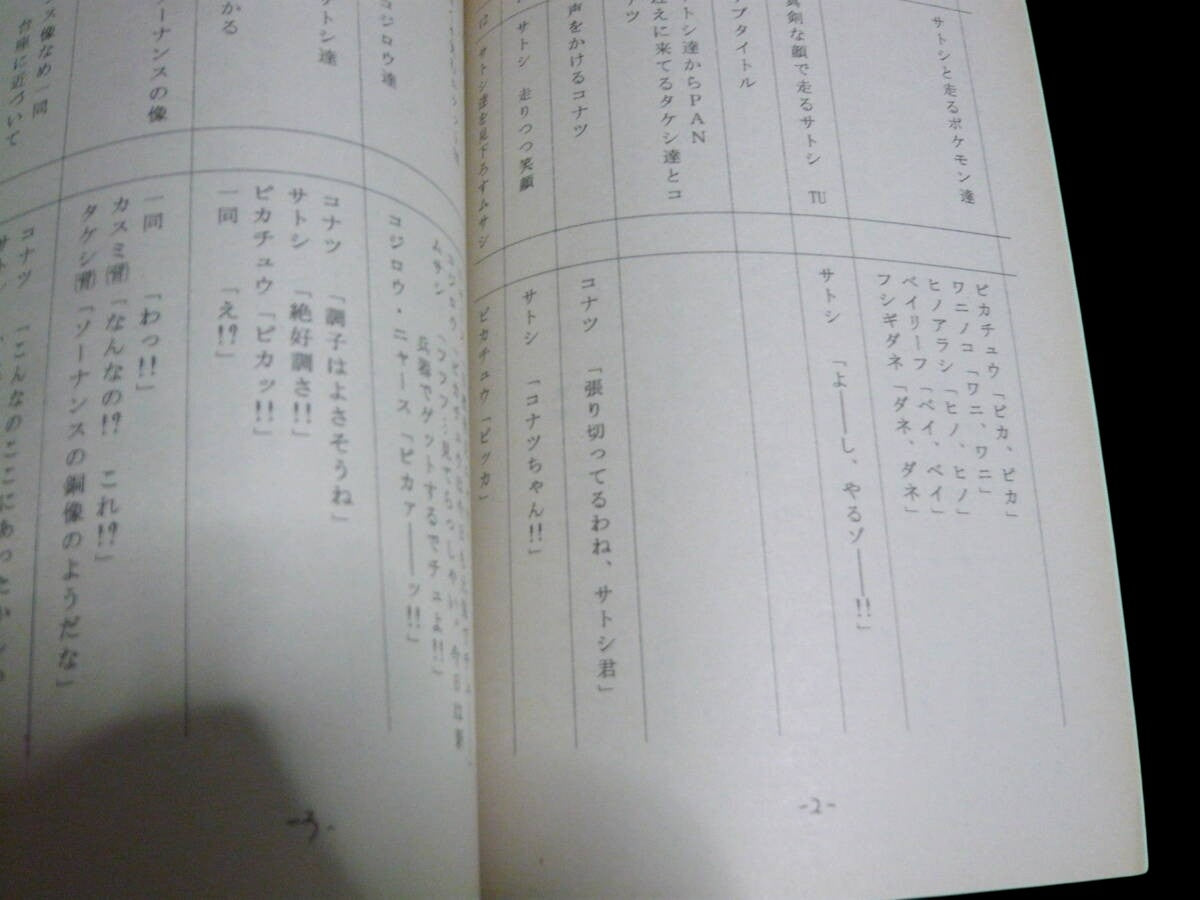 サトシと走るポケモン達
ピカチュウ「ピカ、ピカ」
ワニノコ「ワニ、ワニ」
ヒノアラシ「ヒノ、ヒノ」
ベイリーフ「ベイ、ベイ」
フシギダネ「ダネ、ダネ」
真剣な顔で走るサトシ TU
サトシ 「よ――し、やるゾ――!!」
ブタイトル
トシ達からPAN
迎えに来てるタケシ達とコ
ナツ
声をかけるコナツ
コナツ 「張り切ってるわね、サトシ君」
サトシ 走りつつ笑顔
サトシ 「コナツちゃん!!」
サトシ達を見下ろすムサシ
ピカチュウ「ピッカ」
-2-
コジロウ達
ムサシ
兵器でゲットするでチュよ!!」
コジロウ・ニャース「ピカァ――ッ!!」
サトシ達
コナツ 「調子はよさそうね」
サトシ 「絶好調さ!!」
ピカチュウ「ピカッ!!」
がる
一同 「え!?」
ーナンスの像
一同 「わっ!!」
カスミ㊟「なんなの!? これ!?」
タケシ㊟「ソーナンスの銅像のようだな」
ンス像なめ一同
台座に近づいて
コナツ 「こんなのここにあったかしら
-3-